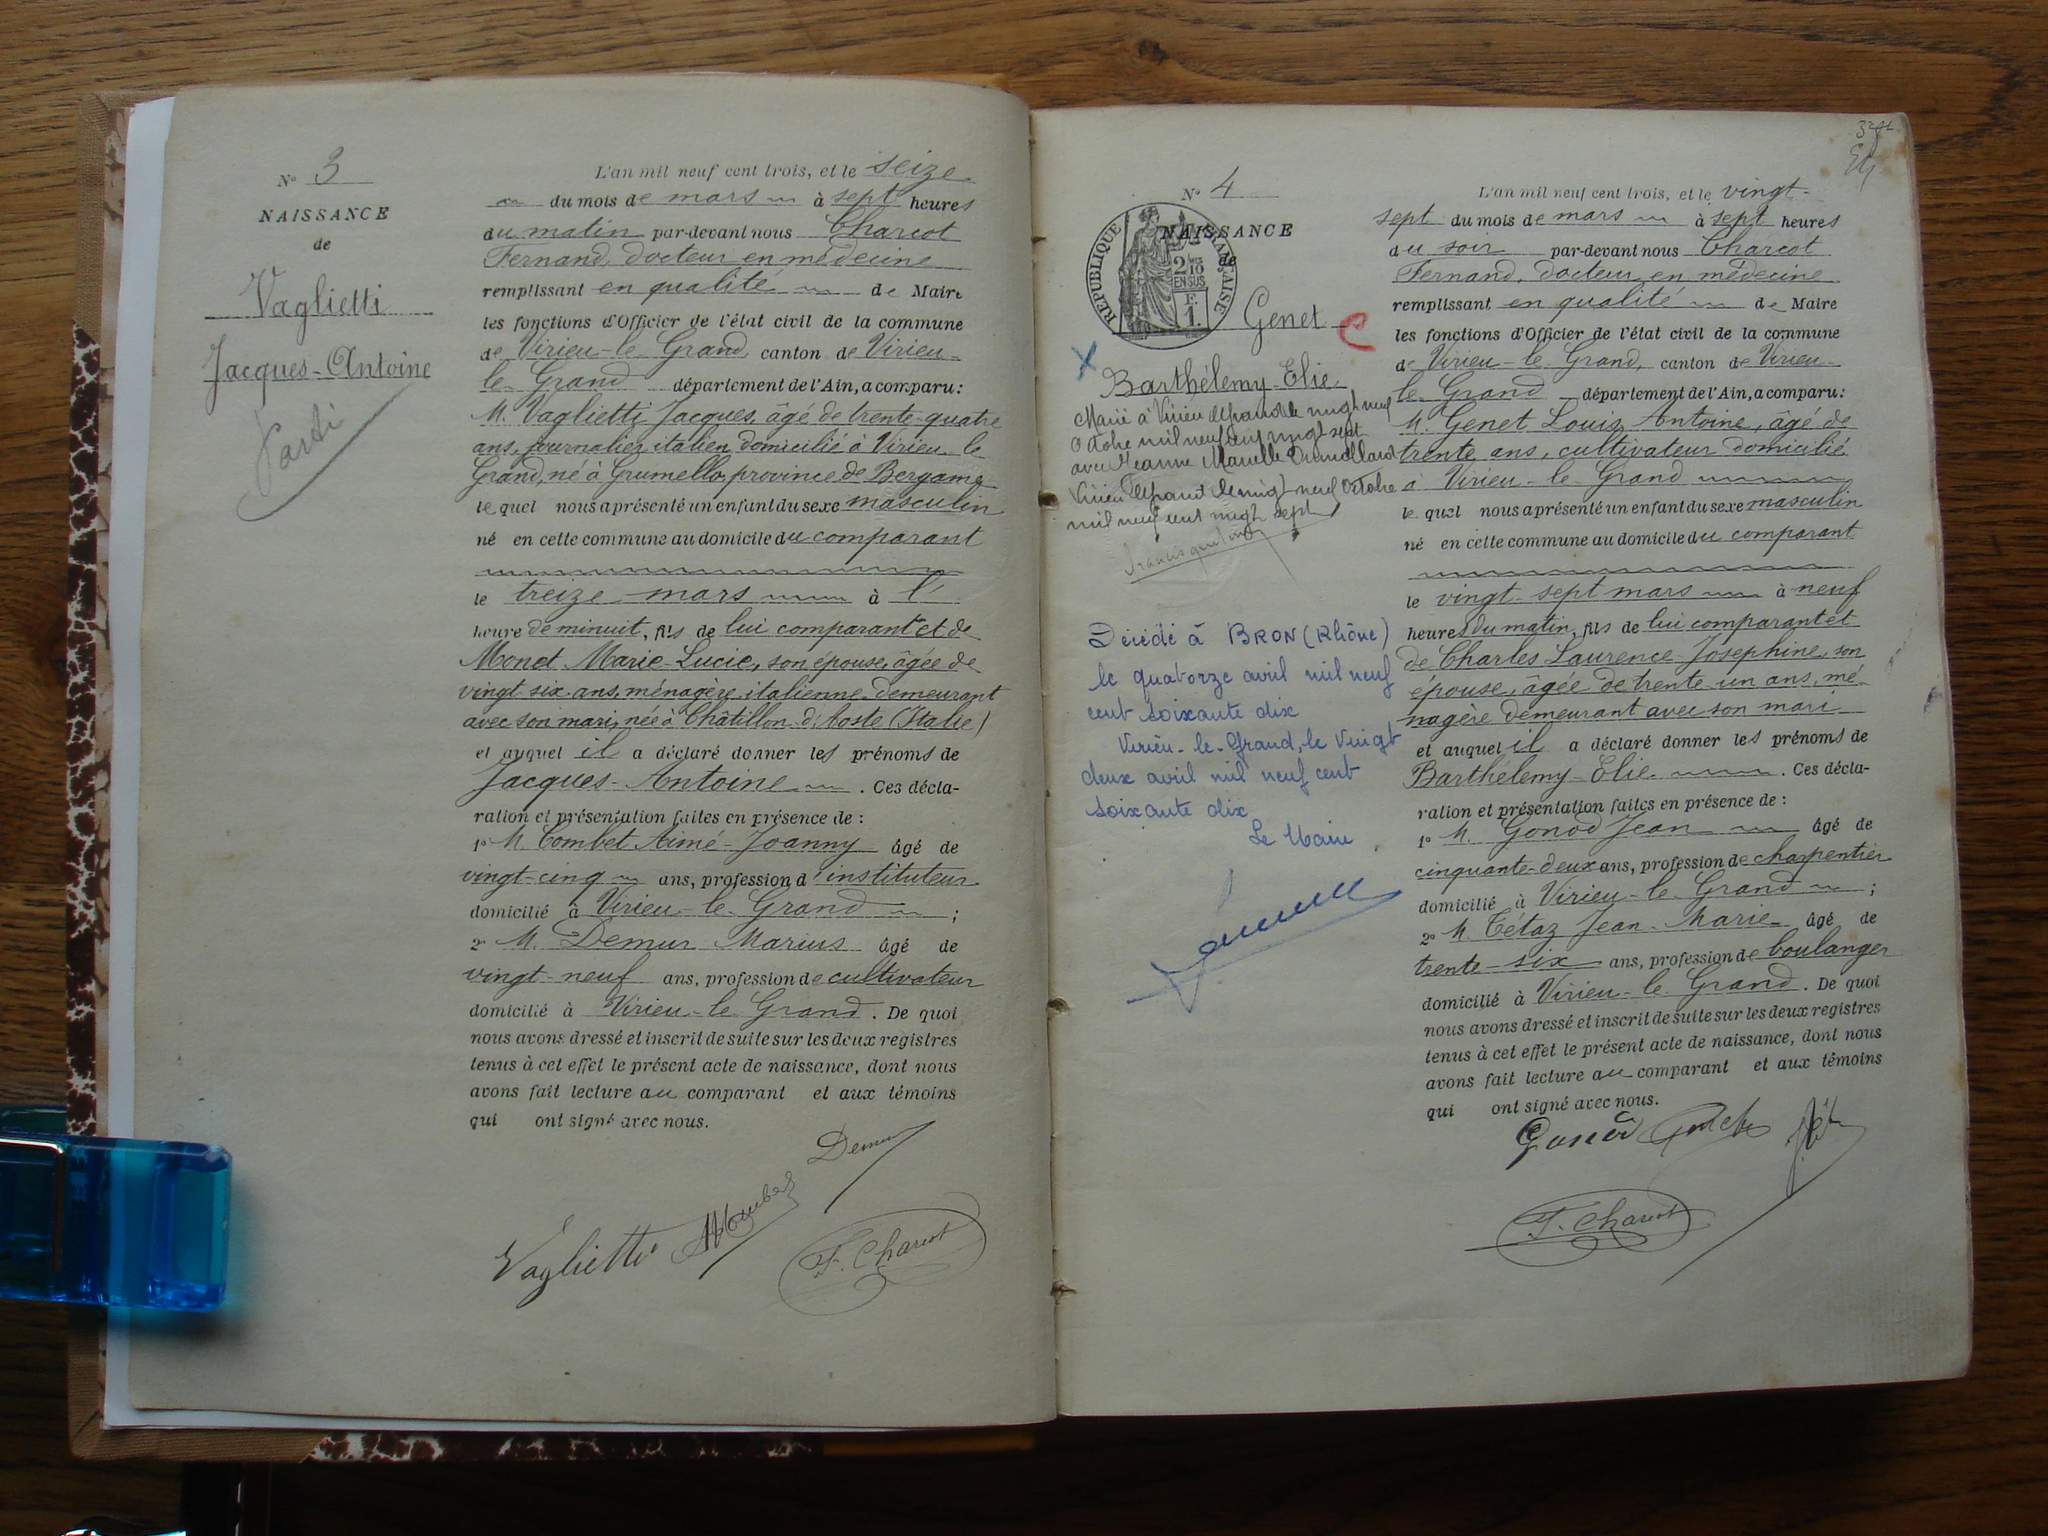 N° 3
NAISSANCE
de
Vaglietti
Jacques-Antoine
Parti
L'an mil neuf cent trois, et le seize
du mois de mars à sept heures
du matin par-devant nous Charcot
Fernand, docteur en médecine
remplissant en qualité de Maire
les fonctions d'Officier de l'état civil de la commune
de Virieu-le-Grand, canton de Virieu-
le-Grand département de l'Ain, a comparu:
M. Vaglietti Jacques, âgé de trente-quatre
ans, journalier italien domicilié à Virieu-le-
Grand, né à Grumello, province de Bergame
le quel nous a présenté un enfant du sexe masculin
né en cette commune au domicile du comparant
le treize mars à l'
heure de minuit, fils de lui comparant et de
Monet Marie-Lucie, son épouse, âgée de
vingt-six ans, ménagère italienne demeurant
avec son mari, née à Châtillon d'Aoste (Italie)
et auquel il a déclaré donner les prénoms de
Jacques-Antoine. Ces décla-
ration et présentation faites en présence de :
1° M. Combet Aimé-Joanny âgé de
vingt-cinq ans, profession d'instituteur
domicilié à Virieu-le-Grand ;
2° M. Demur Marius âgé de
vingt-neuf ans, profession de cultivateur
domicilié à Virieu-le-Grand. De quoi
nous avons dressé et inscrit de suite sur les deux registres
tenus à cet effet le présent acte de naissance, dont nous
avons fait lecture au comparant et aux témoins
qui ont signé avec nous.
Demur
Vaglietti
F. Charcot
N° 4
NAISSANCE
de
RÉPUBLIQUE FRANÇAISE
2/10
EN SUS
F.
1.
Genet
Barthélemy-Elie
Marié à Virieu le grand le vingt neuf
Octobre mil neuf cent vingt sept
avec Jeanne Marcelle
Virieu le grand le vingt neuf Octobre
mil neuf cent vingt sept
Décédé à BRON (Rhône)
le quatorze avril mil neuf
cent soixante dix
Virieu-le-Grand, le vingt
deux avril mil neuf cent
soixante dix
Le Maire
L'an mil neuf cent trois, et le vingt-
sept du mois de mars à sept heures
du soir par-devant nous Charcot
Fernand, docteur en médecine
remplissant en qualité de Maire
les fonctions d'Officier de l'état civil de la commune
de Virieu-le-Grand, canton de Virieu-
le-Grand département de l'Ain, a comparu:
M. Genet Louis Antoine, âgé de
trente ans, cultivateur domicilié
à Virieu-le-Grand
le quel nous a présenté un enfant du sexe masculin
né en cette commune au domicile du comparant
le vingt-sept mars à neuf
heures du matin, fils de lui comparant et
de Charles Laurence-Josephine, son
épouse, âgée de trente un ans, mé-
nagère demeurant avec son mari
et auquel il a déclaré donner les prénoms de
Barthélemy-Elie. Ces décla-
ration et présentation faites en présence de :
1° M. Gonod Jean âgé de
cinquante-deux ans, profession de charpentier
domicilié à Virieu-le-Grand ;
2° M. Tétaz Jean-Marie âgé de
trente-six ans, profession de boulanger
domicilié à Virieu-le-Grand. De quoi
nous avons dressé et inscrit de suite sur les deux registres
tenus à cet effet le présent acte de naissance, dont nous
avons fait lecture au comparant et aux témoins
qui ont signé avec nous.
Gonod
F. Charcot